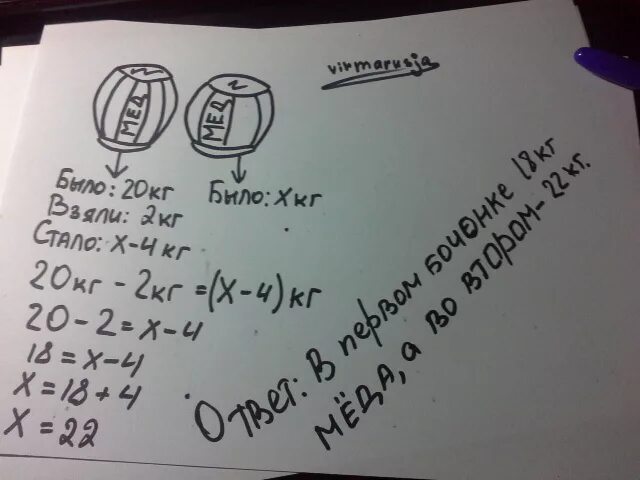 virmarusja
МЕД
МЕД
Было: 20кг
Было: Xкг
Взяли: 2кг
Стало: X-4кг
20кг - 2кг = (X-4)кг
20-2=X-4
18=X-4
X=18+4
X=22
Ответ: В первом бочонке 18кг
мёда, а во втором-22кг.